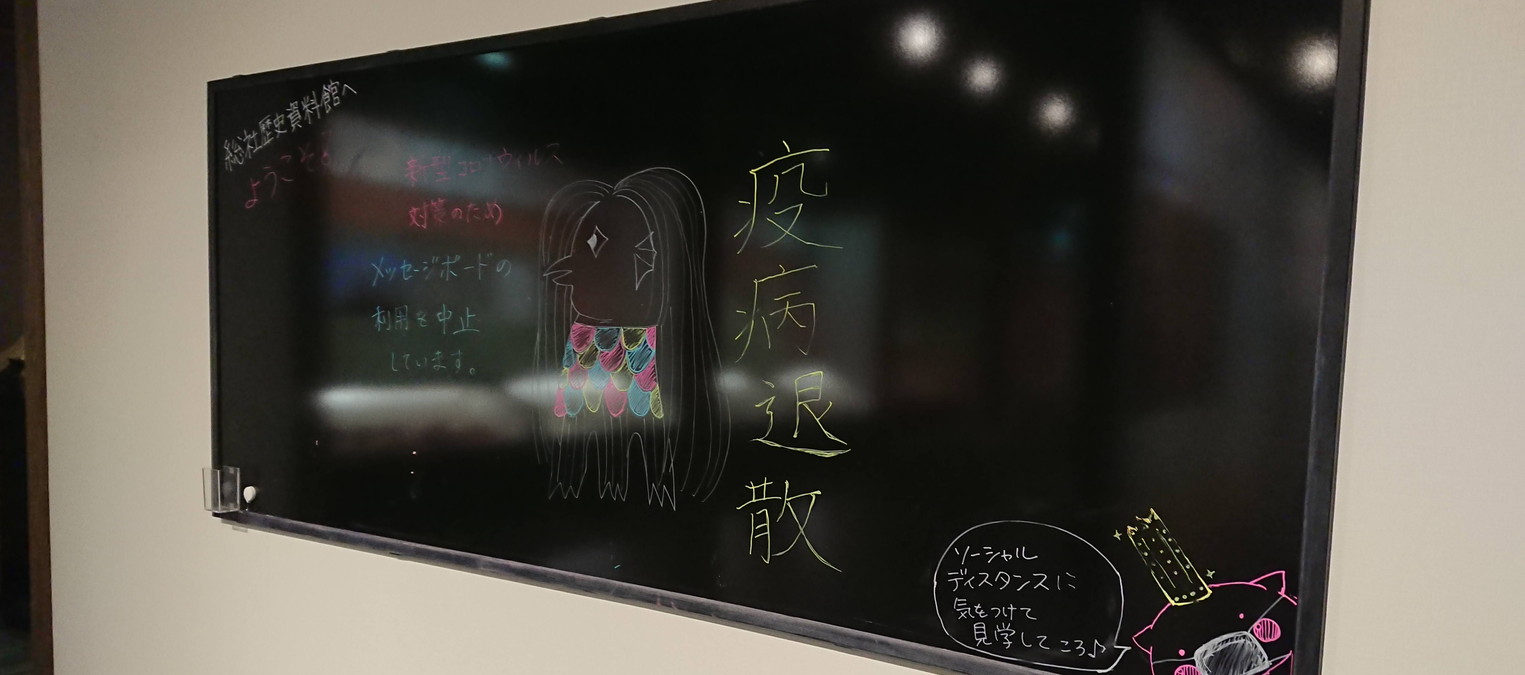 総社歴史資料館へ
ようこそ
新型コロナウィルス
対策のため
メッセージボードの
利用を中止
しています。
疫病退散
ソーシャル
ディスタンスに
気をつけて
見学してころ♪